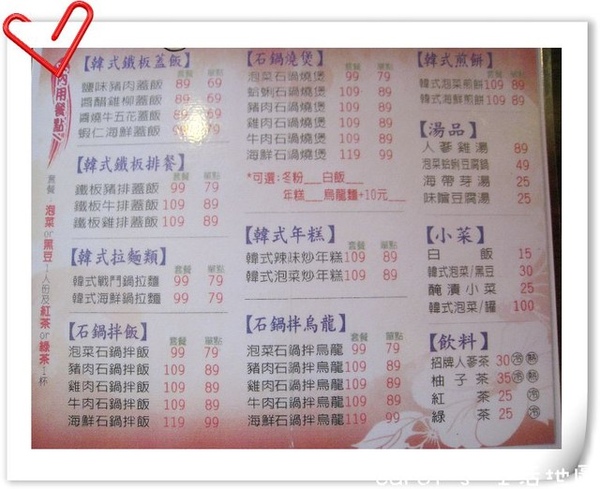 內用餐點
套餐：泡菜or黑豆1人份及紅茶or綠茶1杯
【韓式鐵板蓋飯】
套餐 單點
鹽味豬肉蓋飯 89 69
醬醋雞柳蓋飯 89 69
醬燒牛五花蓋飯 89 69
蝦仁海鮮蓋飯 89 69
【韓式鐵板排餐】
套餐 單點
鐵板豬排蓋飯 99 79
鐵板牛排蓋飯 109 89
鐵板雞排蓋飯 109 89
【韓式拉麵類】
套餐 單點
韓式戰鬥鍋拉麵 99 79
韓式海鮮鍋拉麵 99 79
【石鍋拌飯】
套餐 單點
泡菜石鍋拌飯 99 79
豬肉石鍋拌飯 109 89
雞肉石鍋拌飯 109 89
牛肉石鍋拌飯 109 89
海鮮石鍋拌飯 119 99
【石鍋燒煲】
套餐 單點
泡菜石鍋燒煲 99 79
蛤蜊石鍋燒煲 109 89
豬肉石鍋燒煲 109 89
雞肉石鍋燒煲 109 89
牛肉石鍋燒煲 109 89
海鮮石鍋燒煲 119 99
*可選:冬粉___白飯___
年糕___烏龍麵+10元___
【韓式年糕】
套餐 單點
韓式辣味炒年糕 109 89
韓式泡菜炒年糕 109 89
【石鍋拌烏龍】
套餐 單點
泡菜石鍋拌烏龍 99 79
豬肉石鍋拌烏龍 109 89
雞肉石鍋拌烏龍 109 89
牛肉石鍋拌烏龍 109 89
海鮮石鍋拌烏龍 119 99
【韓式煎餅】
套餐 單點
韓式泡菜煎餅 109 89
韓式海鮮煎餅 109 89
【湯品】
人蔘雞湯 89
泡菜蛤蜊豆腐鍋 49
海帶芽湯 25
味噌豆腐湯 25
【小菜】
白飯 15
韓式泡菜/黑豆 30
醃漬小菜 25
韓式泡菜/罐 100
【飲料】
招牌人蔘茶 30 冷 熱
柚子茶 35 冷 熱
紅茶 25 冷
綠茶 25 冷